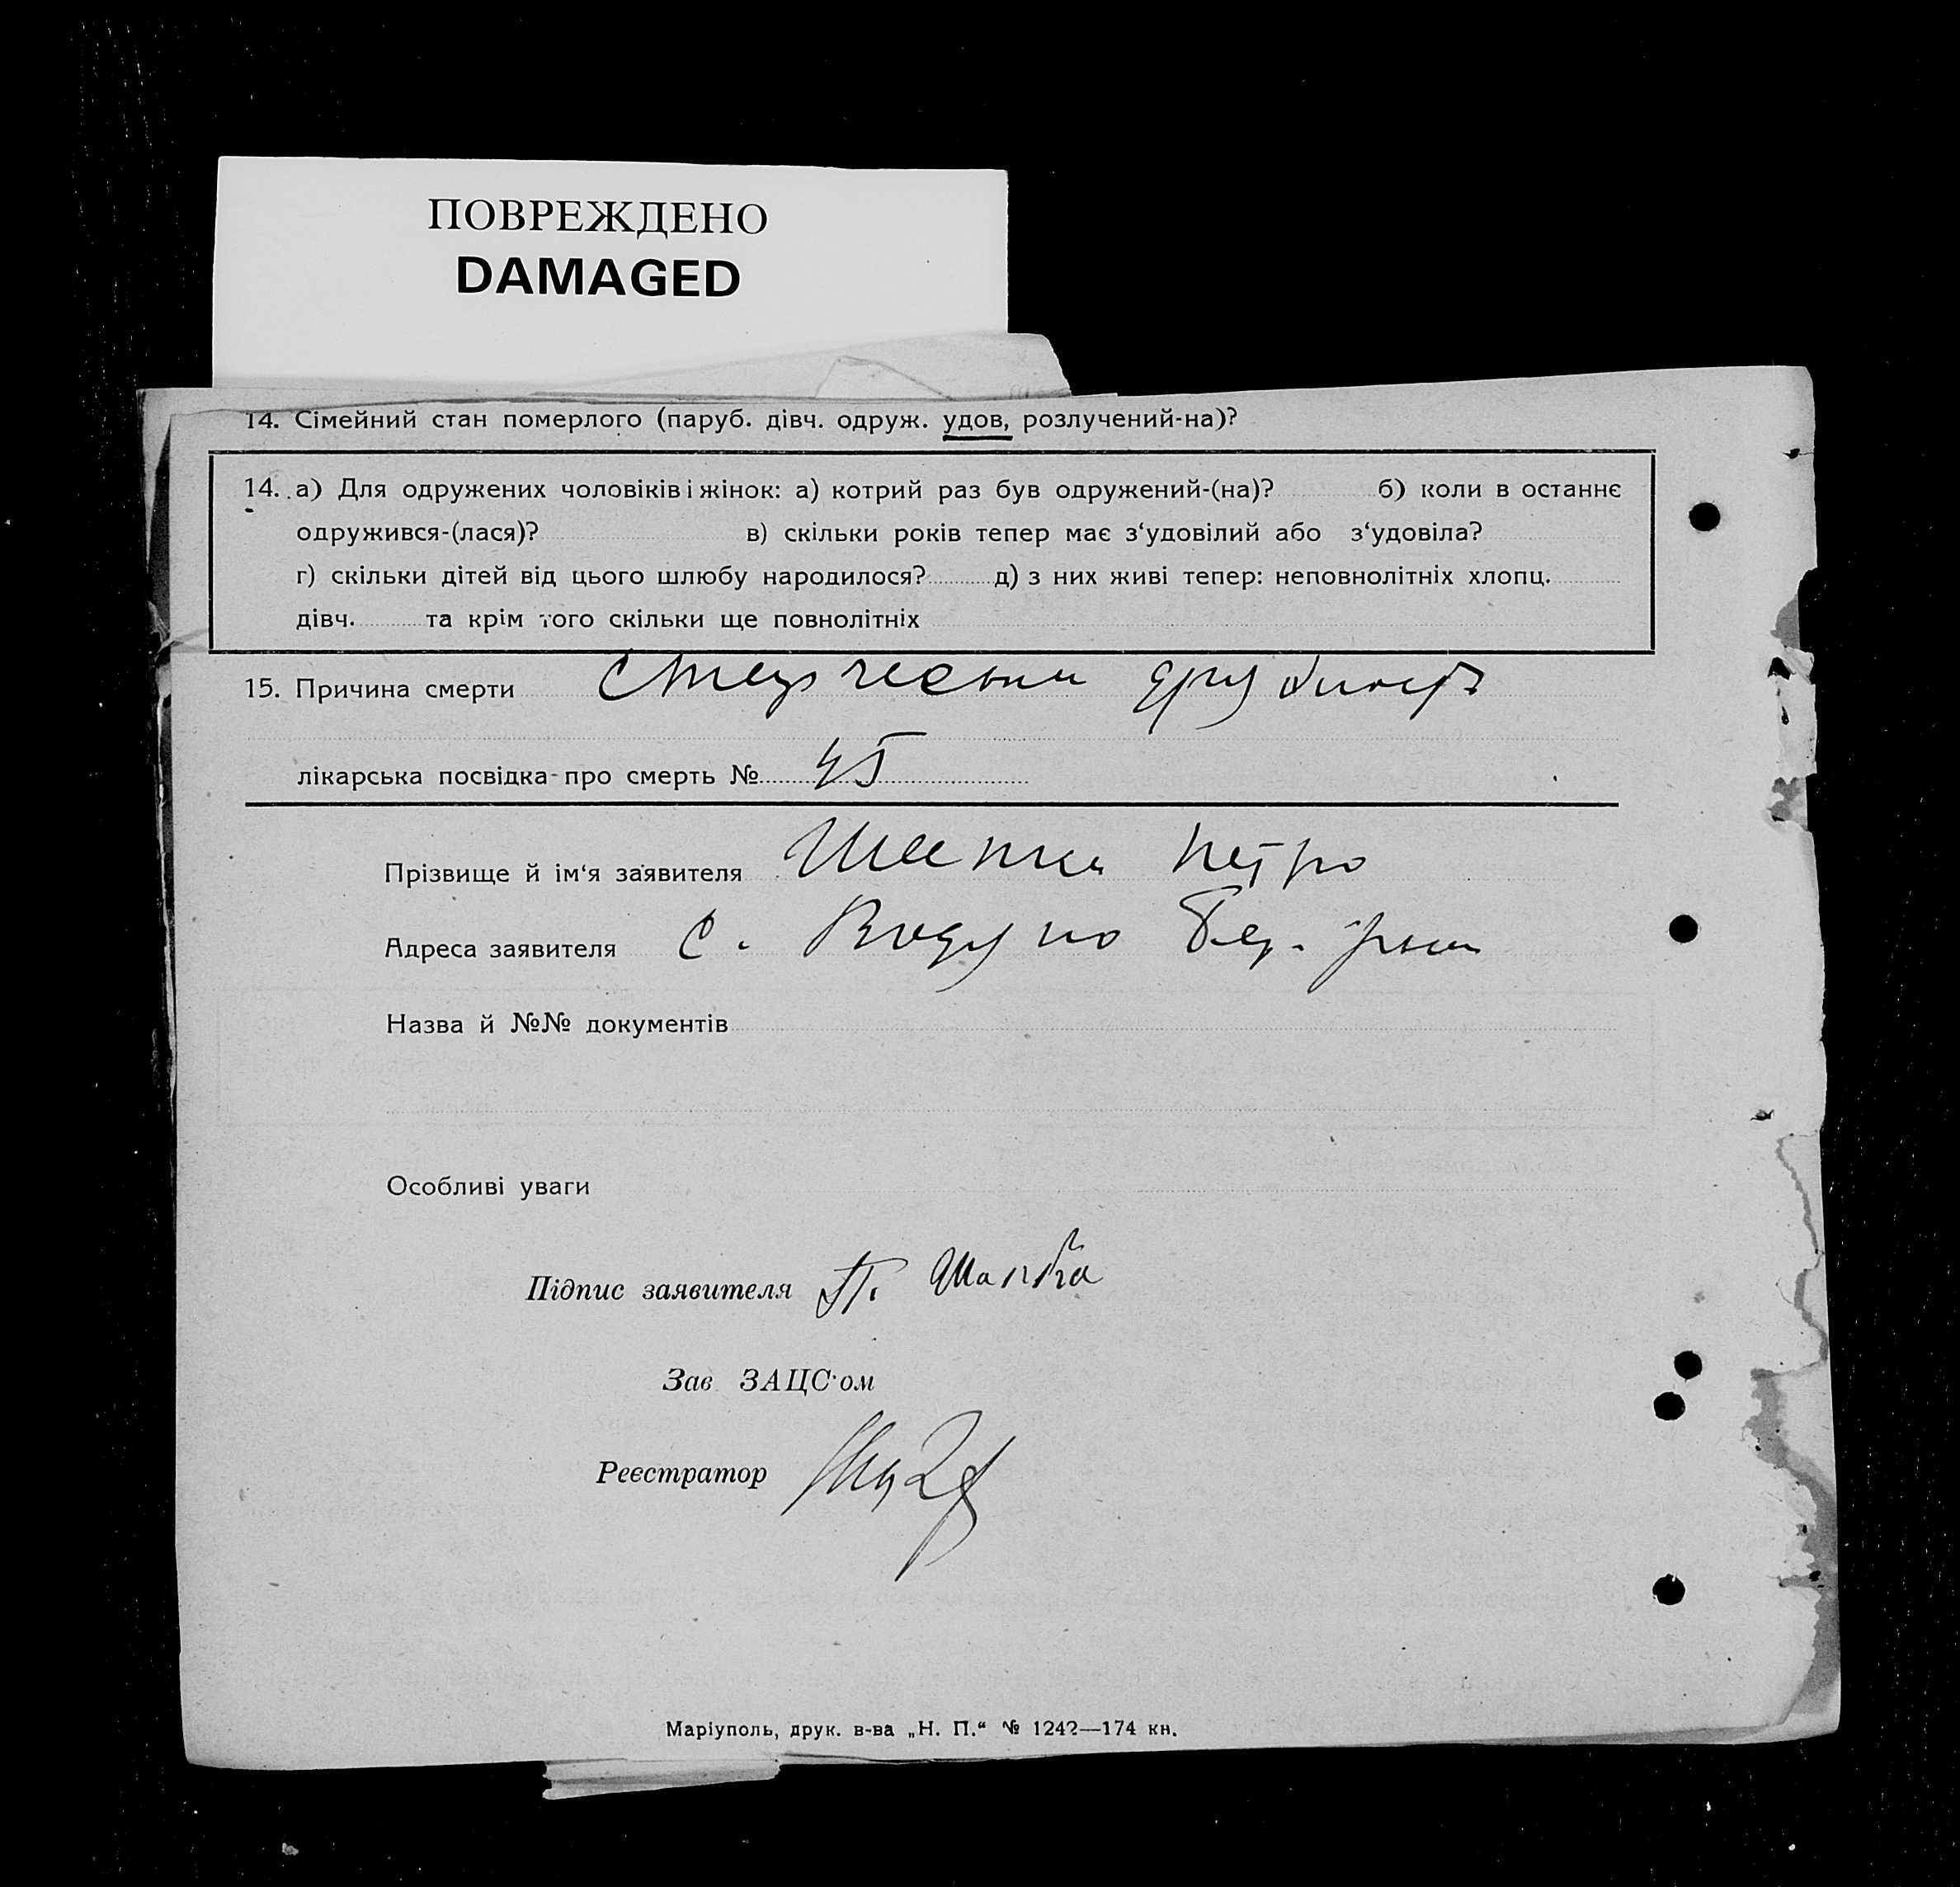 ПОВРЕЖДЕНО
DAMAGED
14. Сімейний стан померлого (паруб. дівч. одруж. удов, розлучений-на)?
14. а) Для одружених чоловіків і жінок: а) котрий раз був одружений-(на)? б) коли в останнє
одружився-(лася)? в) скільки років тепер має з‘удовілий або з‘удовіла?
г) скільки дітей від цього шлюбу народилося? д) з них живі тепер: неповнолітніх хлопц.
дівч. та крім того скільки ще повнолітніх
15. Причина смерти
лікарська посвідка про смерть № 45
Прізвище й ім‘я заявителя Шапка Петро
Адреса заявителя с.
Назва й №№ документів
Особливі уваги
Підпис заявителя П. Шапка
Зав ЗАЦС‘ом
Реєстратор
Маріуполь, друк. в-ва „Н. П.“ № 1242—174 кн.